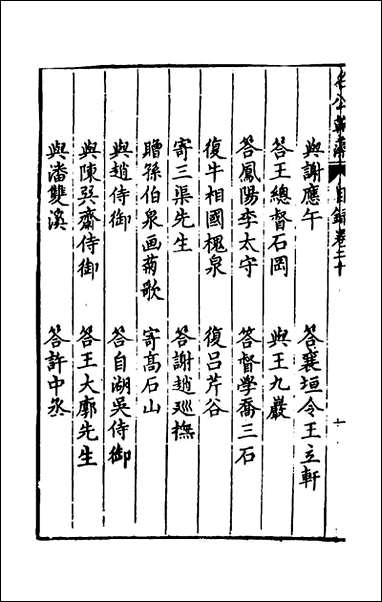 名公翰藻 目録卷二十 十
與謝應午 答襄垣令王立軒
答王總督石岡 與王九巖
答鳳陽李太守 答督學喬三石
復牛相國槐泉 復呂芹谷
寄三渠先生 答謝趙廵撫
贈孫伯泉画菊歌 寄高石山
與趙侍御 答自湖吳侍御
與陳巽齋侍御 答王大廓先生
與潘雙溪 答許中丞